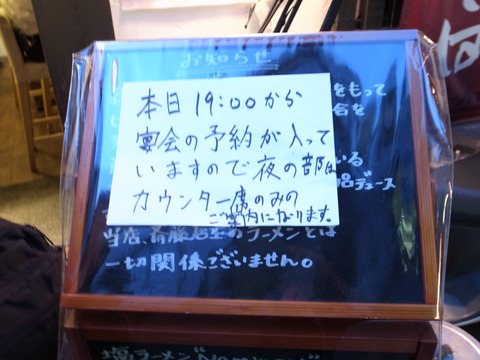 お知らせ
をもって
本日 19:00から
宴会の予約が入って
いますので夜の部は
カウンター席のみの
ご案内になります。
いる
デュース
当店、斉藤店主のラーメンとは
一切関係ございません。
塩ラーメン